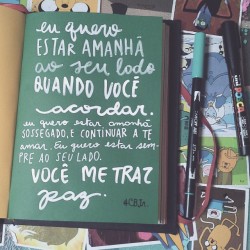 eu quero
ESTAR AMANHÃ
ao seu lado
QUANDO VOCÊ
acordar.
eu quero estar amanhã
SOSSEGADO, E CONTINUAR A TE
amar. Eu quero estar sem-
PRE AO SEU LADO.
VOCÊ ME TRAZ
paz.
#CBJr.